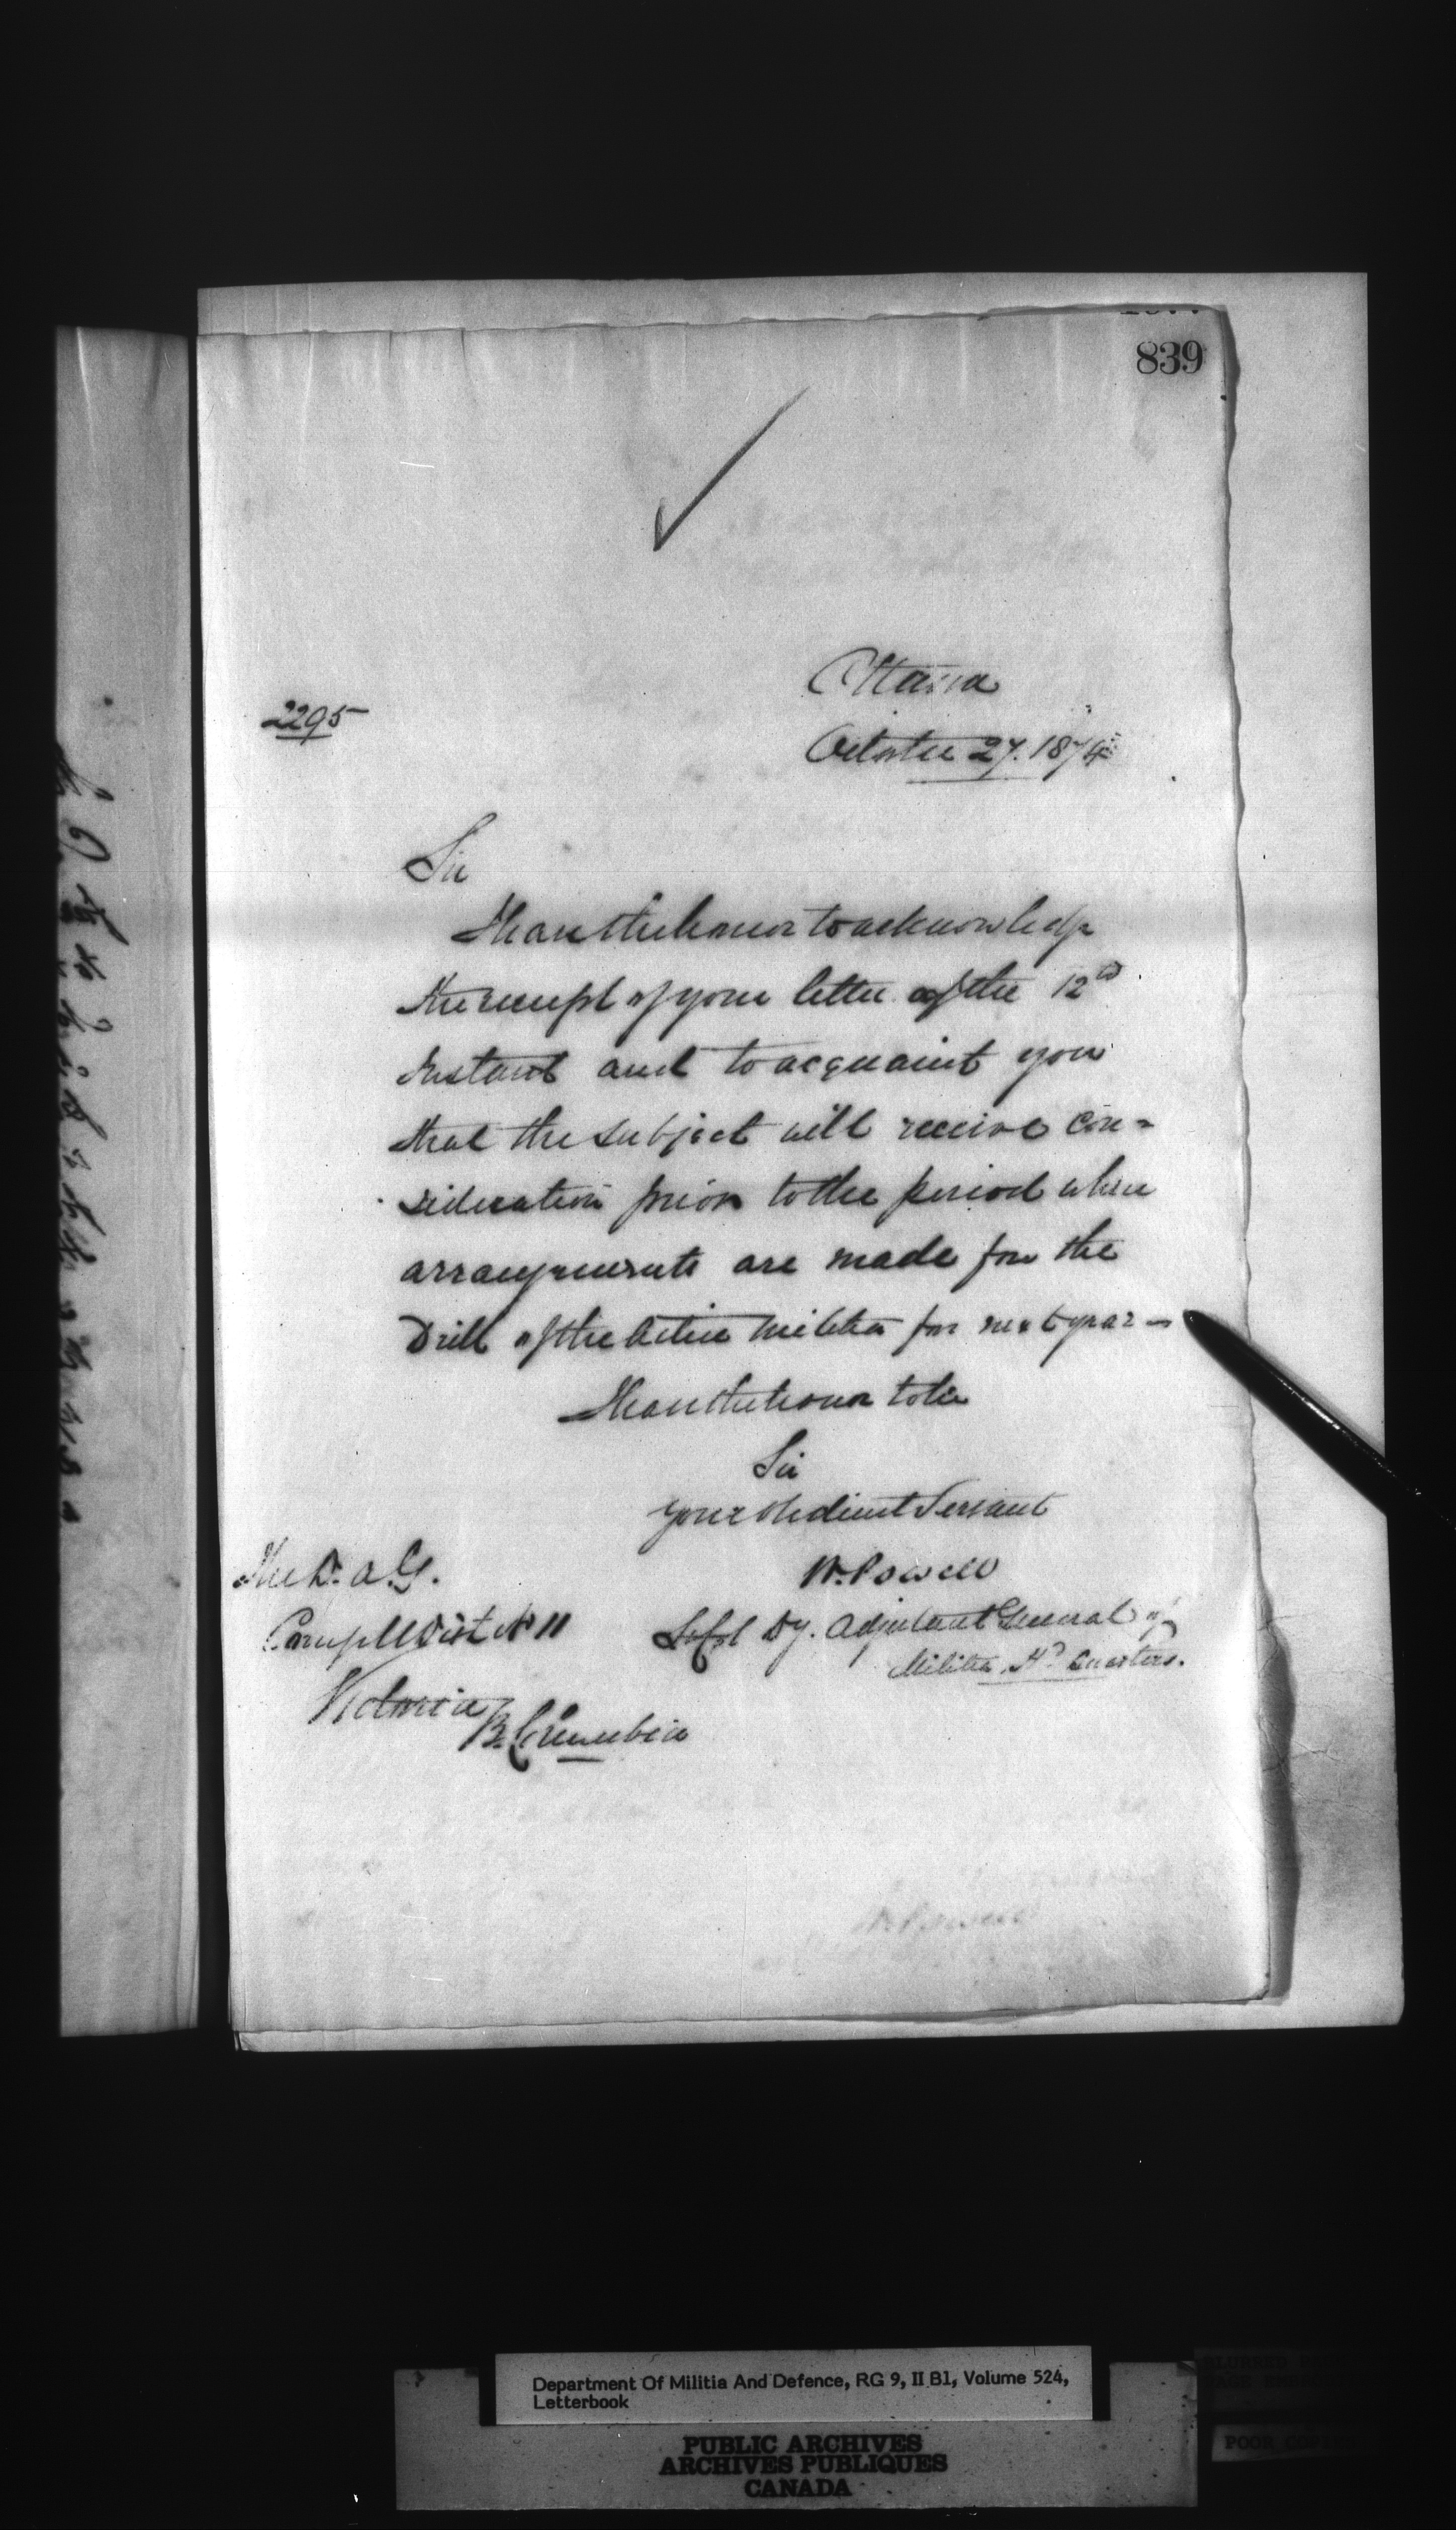 839
Ottawa
2295
October 27. 1874
Sir
I have the honor to acknowledge
the receipt of your letter of the 12th
Instant and to acquaint you
that the subject will receive con-
sideration prior to the period when
arrangements are made for the
Drill of the Active Militia for next year -
I have the honor to be
Sir
your obedient Servant
W. Powell
Lt Col Dy. Adjutant General of
Militia Hd Quarters.
The D. A. G.
Comg M Dist No 11
Victoria
B. Columbia
W. Powell
Department Of Militia And Defence, RG 9, II B1, Volume 524,
Letterbook
PUBLIC ARCHIVES
ARCHIVES PUBLIQUES
CANADA